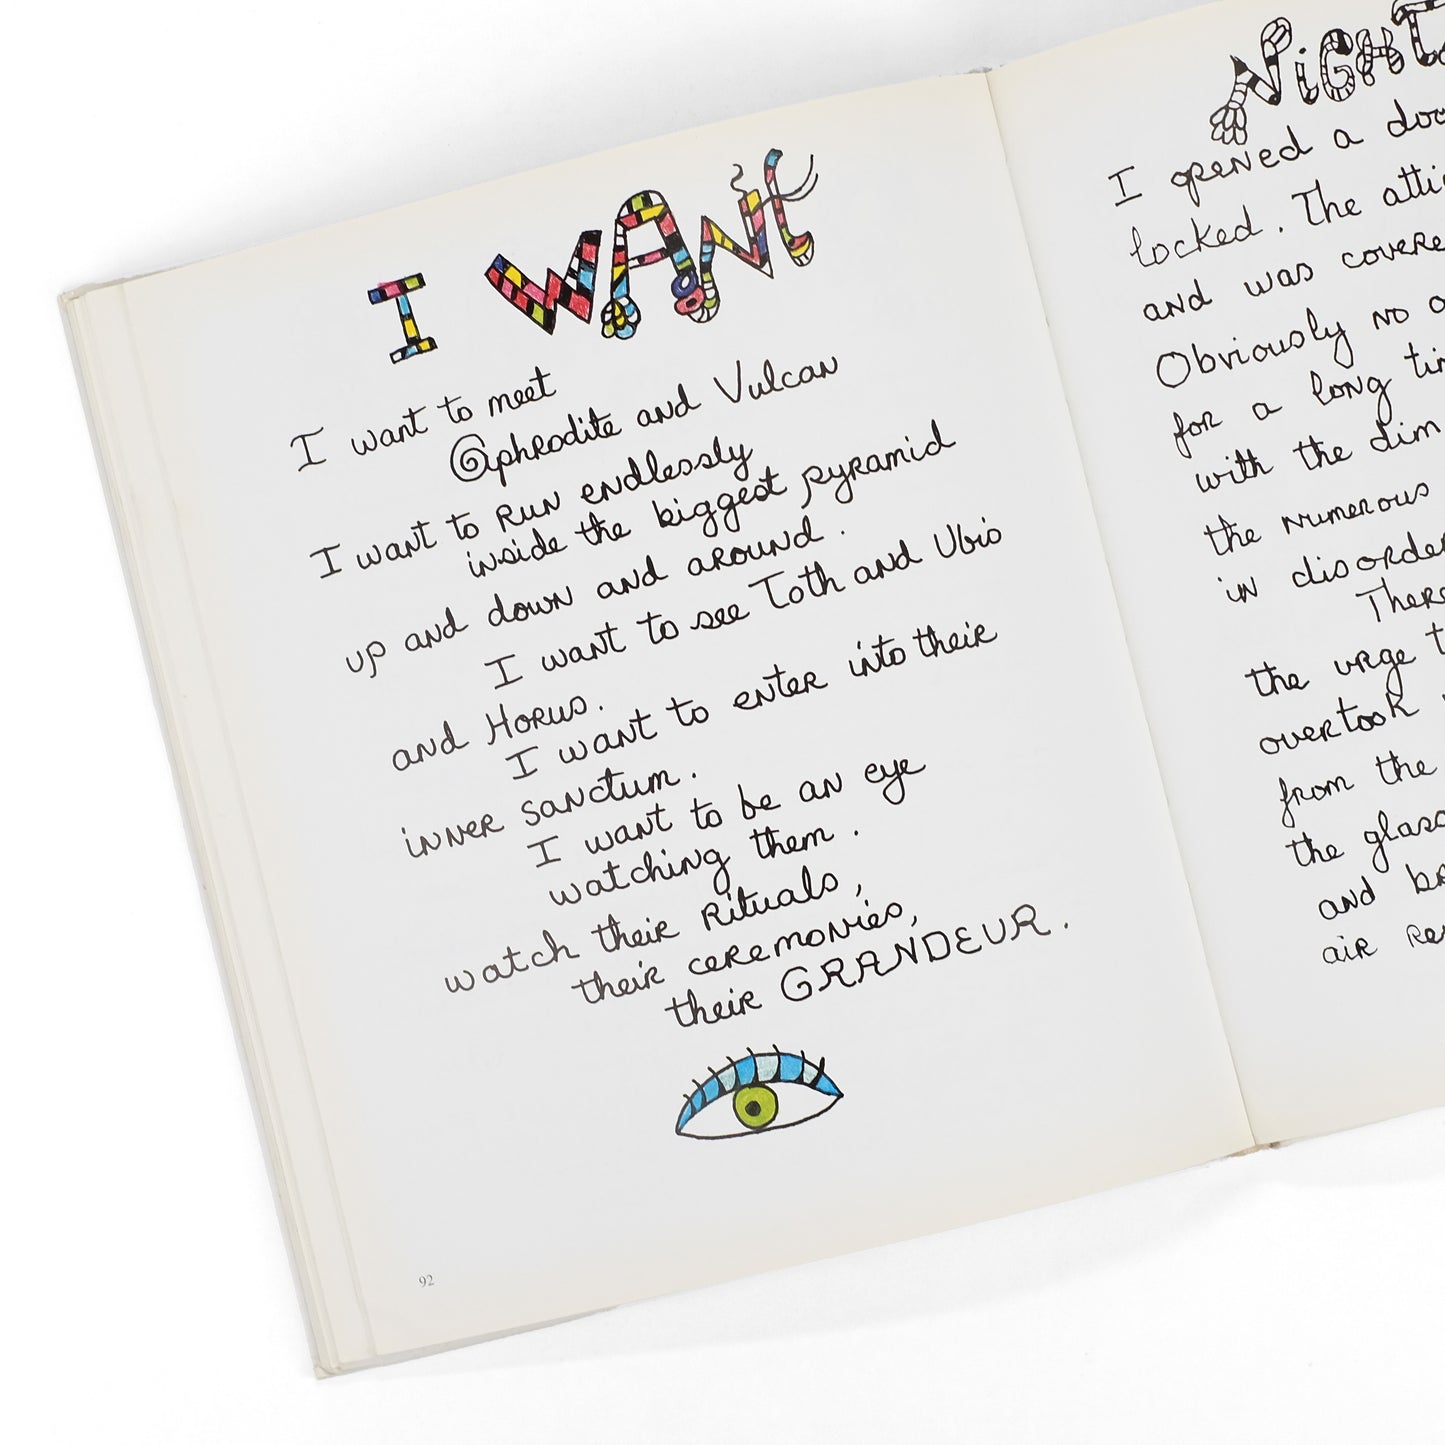 I WANT
I want to meet
Aphrodite and Vulcan
I want to run endlessly
inside the biggest pyramid
up and down and around.
I want to see Toth and Ubio
and Horus.
I want to enter into their
inner sanctum.
I want to be an eye
watching them.
watch their Rituals,
their ceremonies,
their GRANDEUR.
92
I opened a
locked. The
and was
Obviously no
for a long
with the dim
the numerous
in
the urge
overtook
from the
the
and
air